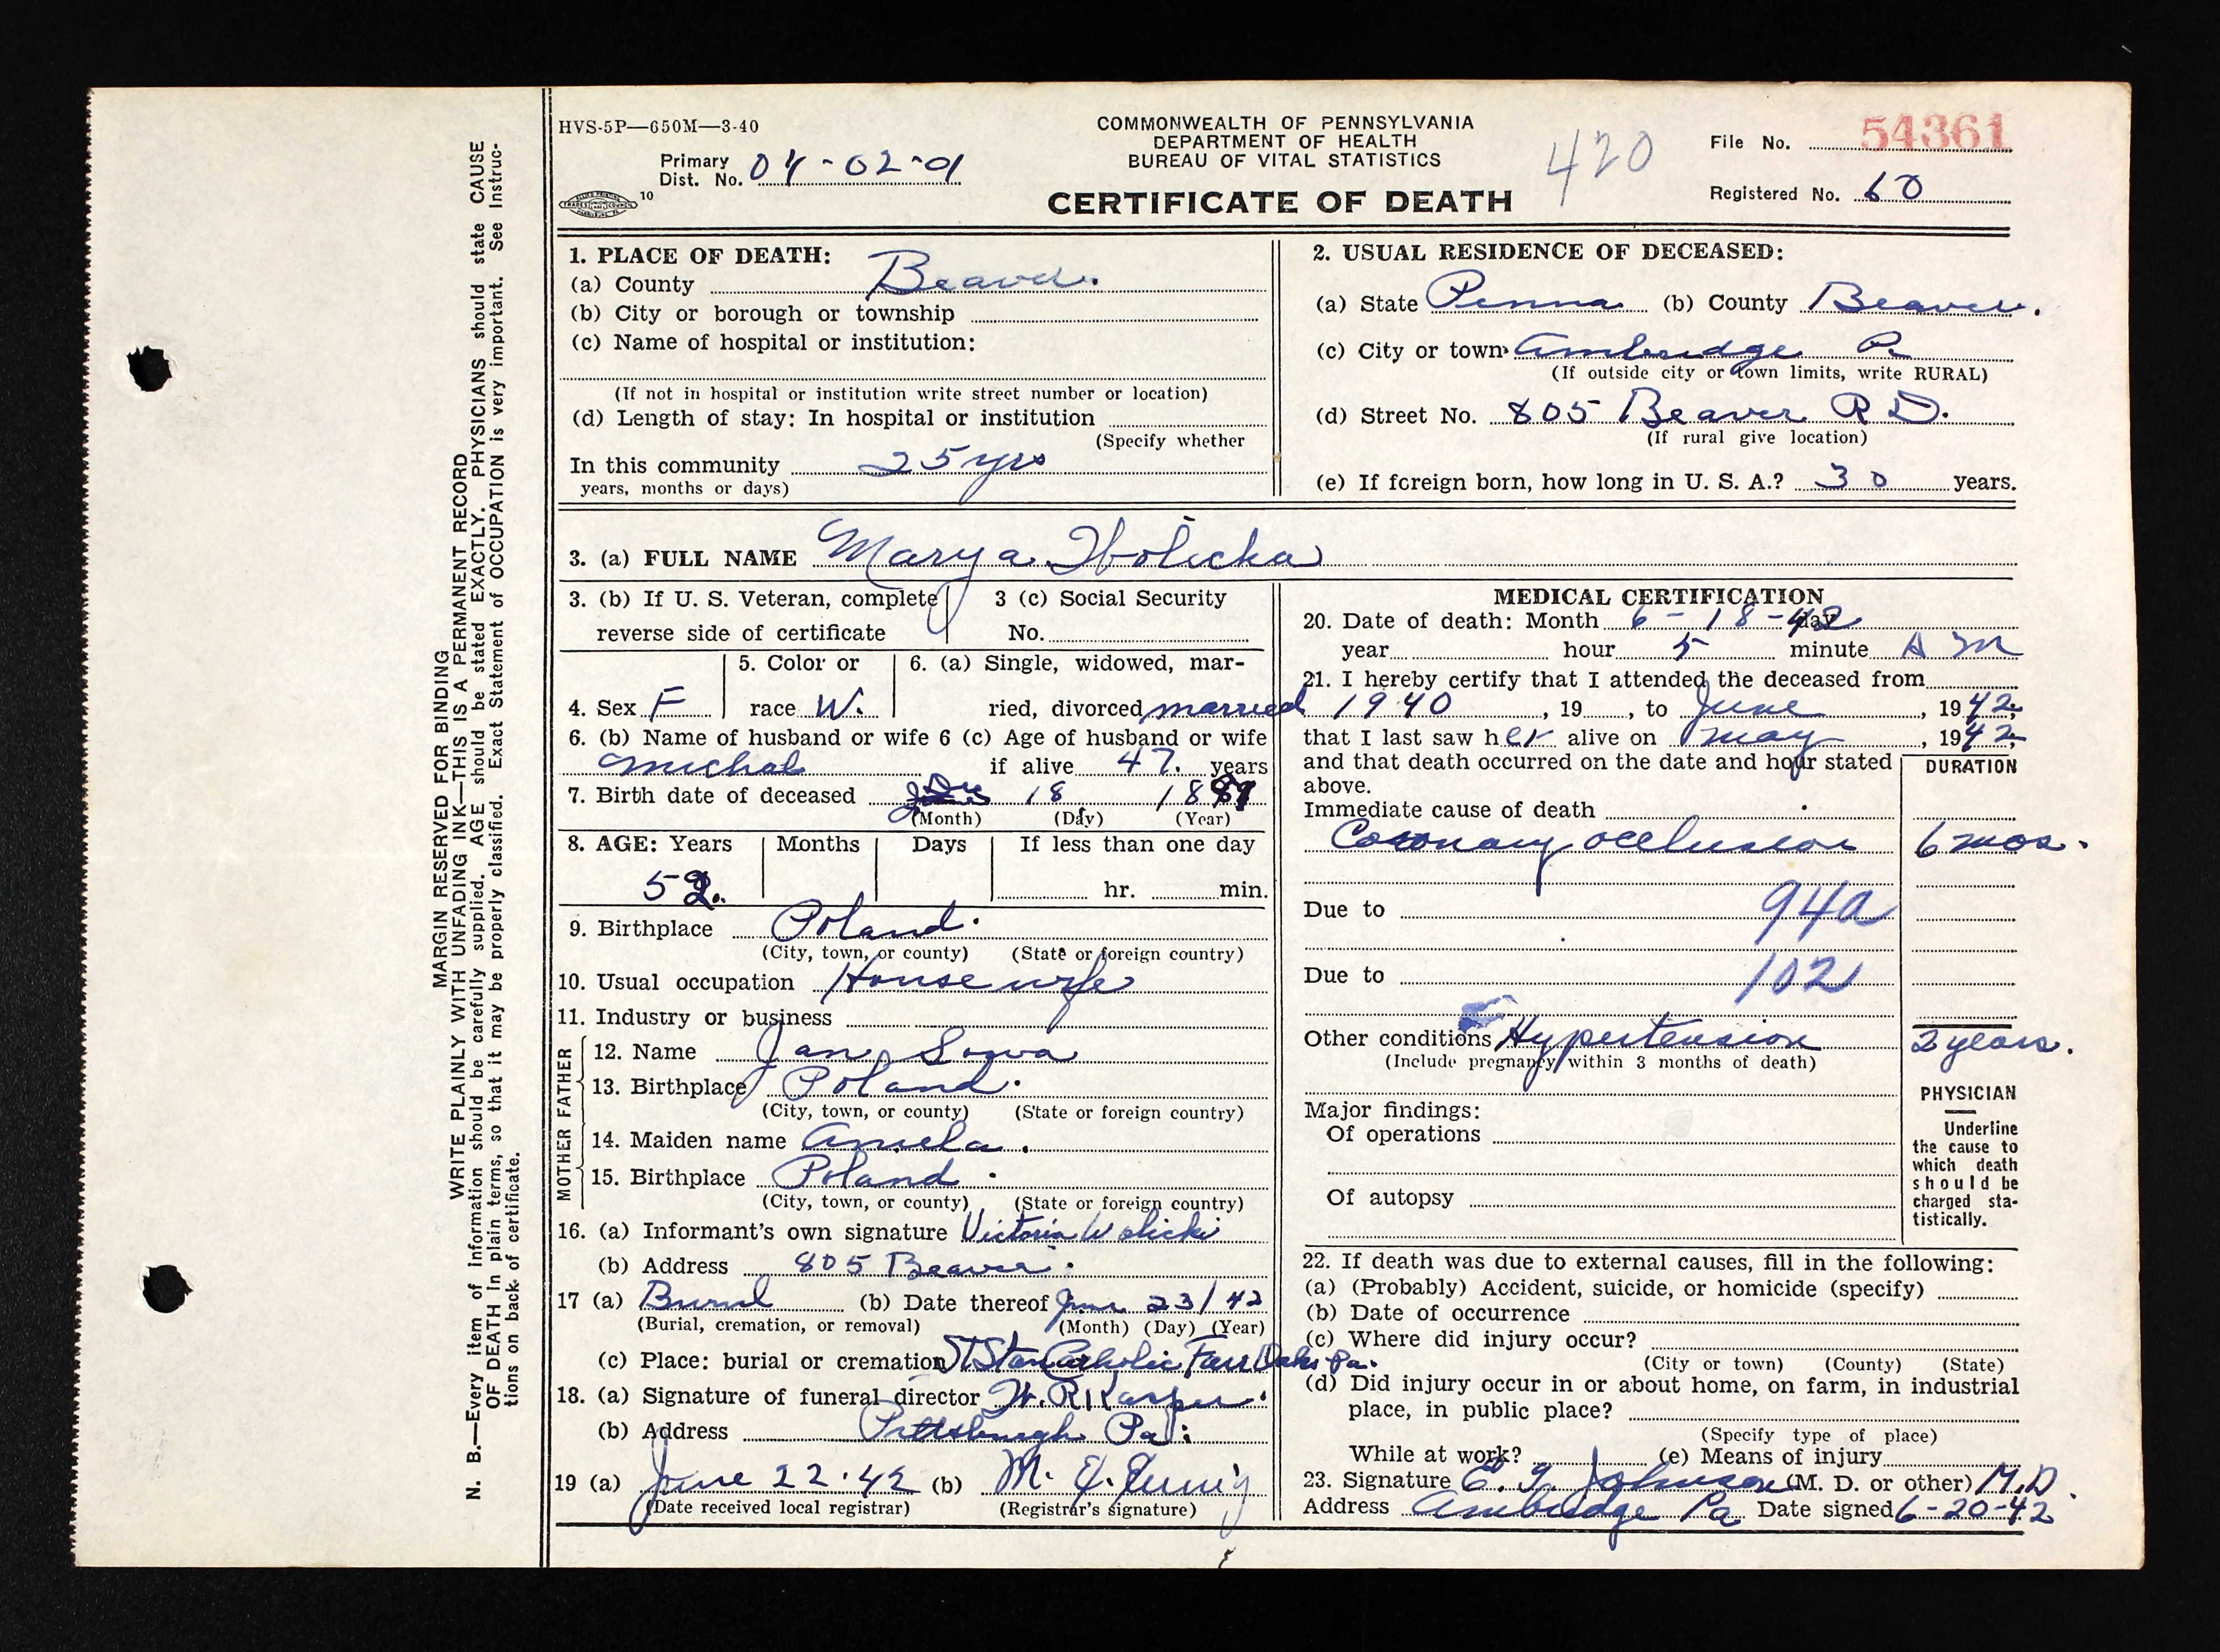 HVS-5P—650M—3-40
COMMONWEALTH OF PENNSYLVANIA
DEPARTMENT OF HEALTH
BUREAU OF VITAL STATISTICS
CERTIFICATE OF DEATH
420
File No. 54361
Registered No. 60
Primary
Dist. No. 04-02-01
10
MARGIN RESERVED FOR BINDING
WRITE PLAINLY WITH UNFADING INK—THIS IS A PERMANENT RECORD
N. B.—Every item of information should be carefully supplied. AGE should be stated EXACTLY. PHYSICIANS should state CAUSE
OF DEATH in plain terms, so that it may be properly classified. Exact Statement of OCCUPATION is very important. See Instruc-
tions on back of certificate.
1. PLACE OF DEATH:
(a) County Beaver.
(b) City or borough or township
(c) Name of hospital or institution:
(If not in hospital or institution write street number or location)
(d) Length of stay: In hospital or institution
(Specify whether
In this community 25 yrs
years, months or days)
2. USUAL RESIDENCE OF DECEASED:
(a) State Penna (b) County Beaver.
(c) City or town Ambridge Pa
(If outside city or town limits, write RURAL)
(d) Street No. 805 Beaver RD.
(If rural give location)
(e) If foreign born, how long in U. S. A.? 30 years.
3. (a) FULL NAME Marya Wolicka
3. (b) If U. S. Veteran, complete
reverse side of certificate
3 (c) Social Security
No.
4. Sex F
5. Color or
race W.
6. (a) Single, widowed, mar-
ried, divorced married
6. (b) Name of husband or wife
Michal
6 (c) Age of husband or wife
if alive 47. years
7. Birth date of deceased 18 1889
(Month) (Day) (Year)
8. AGE: Years Months Days If less than one day
52. hr. min.
9. Birthplace Poland.
(City, town, or county) (State or foreign country)
10. Usual occupation Housewife
11. Industry or business
FATHER
12. Name Jan Sowa
13. Birthplace Poland.
(City, town, or county) (State or foreign country)
MOTHER
14. Maiden name Aniela.
15. Birthplace Poland.
(City, town, or county) (State or foreign country)
16. (a) Informant's own signature Victoria Wolicki
(b) Address 805 Beaver.
17 (a) Burial (b) Date thereof June 23/42
(Burial, cremation, or removal) (Month) (Day) (Year)
(c) Place: burial or cremation St Stan Catholic Fair Oaks Pa.
18. (a) Signature of funeral director
(b) Address Pittsburgh Pa.
19 (a) June 22.42 (b) M.
(Date received local registrar) (Registrar's signature)
MEDICAL CERTIFICATION
20. Date of death: Month 6-18-42 day
year hour 5 minute A M
21. I hereby certify that I attended the deceased from
1940, 19 , to June, 1942;
that I last saw her alive on May, 1942,
and that death occurred on the date and hour stated
above.
DURATION
Immediate cause of death
Coronary occlusion 6 mos.
Due to 94a
Due to 102
Other conditions Hypertension 2 years.
(Include pregnancy within 3 months of death)
Major findings:
Of operations
Of autopsy
PHYSICIAN
Underline
the cause to
which death
should be
charged sta-
tistically.
22. If death was due to external causes, fill in the following:
(a) (Probably) Accident, suicide, or homicide (specify)
(b) Date of occurrence
(c) Where did injury occur?
(City or town) (County) (State)
(d) Did injury occur in or about home, on farm, in industrial
place, in public place?
(Specify type of place)
While at work? (e) Means of injury
23. Signature Johnson (M. D. or other) M.D.
Address Ambridge Pa Date signed 6-20-42